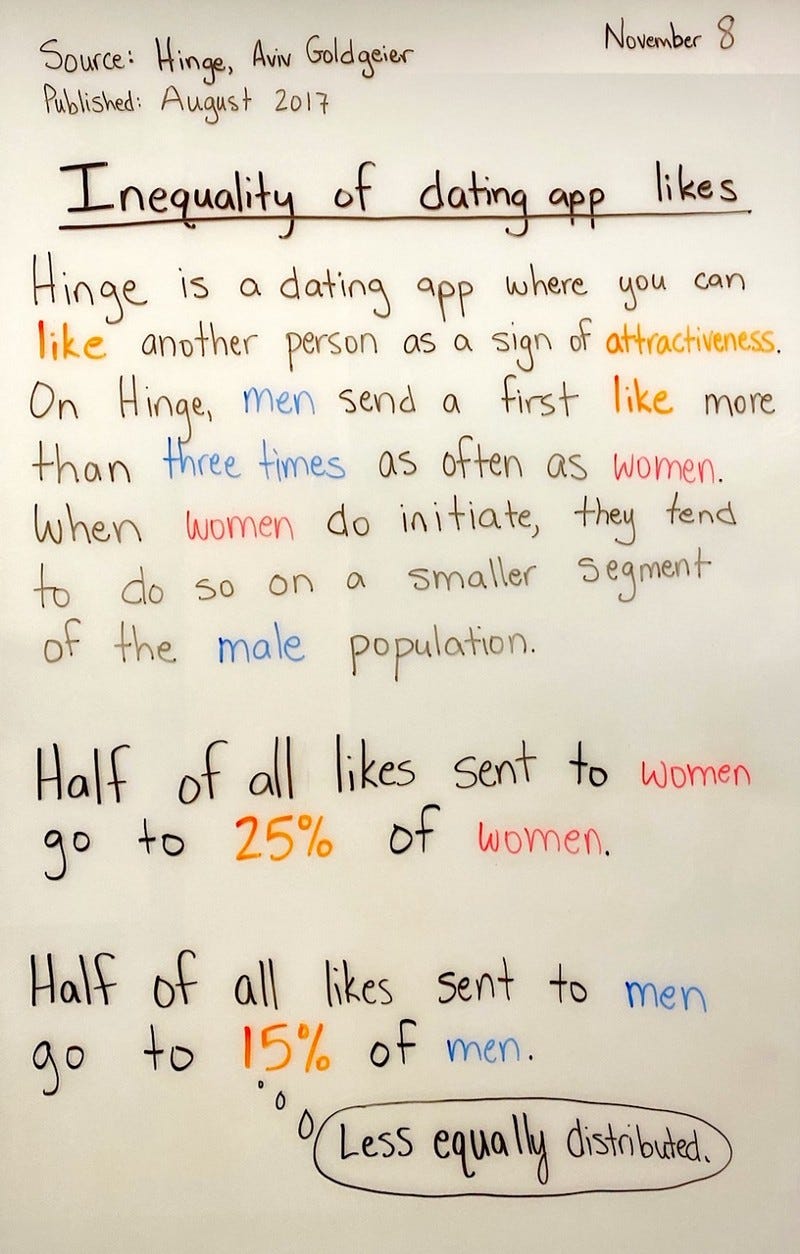 November 8
Source: Hinge, Aviv Goldgeier
Published: August 2017
Inequality of dating app likes
Hinge is a dating app where you can
like another person as a sign of attractiveness.
On Hinge, men send a first like more
than three times as often as women.
When women do initiate, they tend
to do so on a smaller segment
of the male population.
Half of all likes sent to women
go to 25% of women.
Half of all likes sent to men
go to 15% of men.
Less equally distributed.